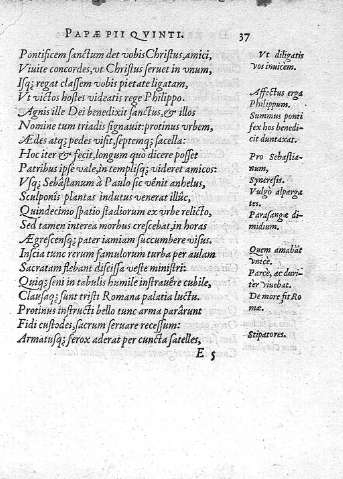 PAPÆ PII QVINTI. 37
Pontificem sanctum det vobis Christus, amici,
Viuite concordes, vt Christus seruet in vnum,
Isq; regat classem vobis pietate ligatam,
Vt victos hostes videatis rege Philippo.
Agnis ille Dei benedixit sanctus, & illos
Nomine tum triadis signauit: protinus vrbem,
Ædes atq; pedes visit, septemq; sacella:
Hoc iter & fecit, longum quo dicere posset
Patribus ipse vale, in templisq; videret amicos:
Vsq; Sebâstanum à Paulo sic vênit anhelus,
Sculponis plantas indutus venerat illuc,
Quindecimo spatio stadiorum ex vrbe relicto,
Sed tamen interea morbus crescebat, in horas
Ægrescensq; pater iamiam succumbere visus.
Inscia tunc rerum famulorum turba per aulam
Sacratam flebant discissa veste ministri:
Quiq; seni in tabulis humile instrauêre cubile,
Clausaq; sunt tristi Romana palatia luctu.
Protinus instructi bello tunc arma parârunt
Fidi custodes, sacrum seruare recessum:
Armatusq; ferox aderat per cuncta satelles,
E 5
Vt diligatis
vos inuicem.
Affectus erga
Philippum.
Summus ponti
fex hos benedi
cit duntaxat.
Pro Sebastia-
num.
Syncresis.
Vulgo alparga
tes.
Parasangæ di-
midium.
Quem amabāt
vnicè.
Parcè, ac duri-
ter viuebat.
De more fit Ro
mæ.
Stipatores.